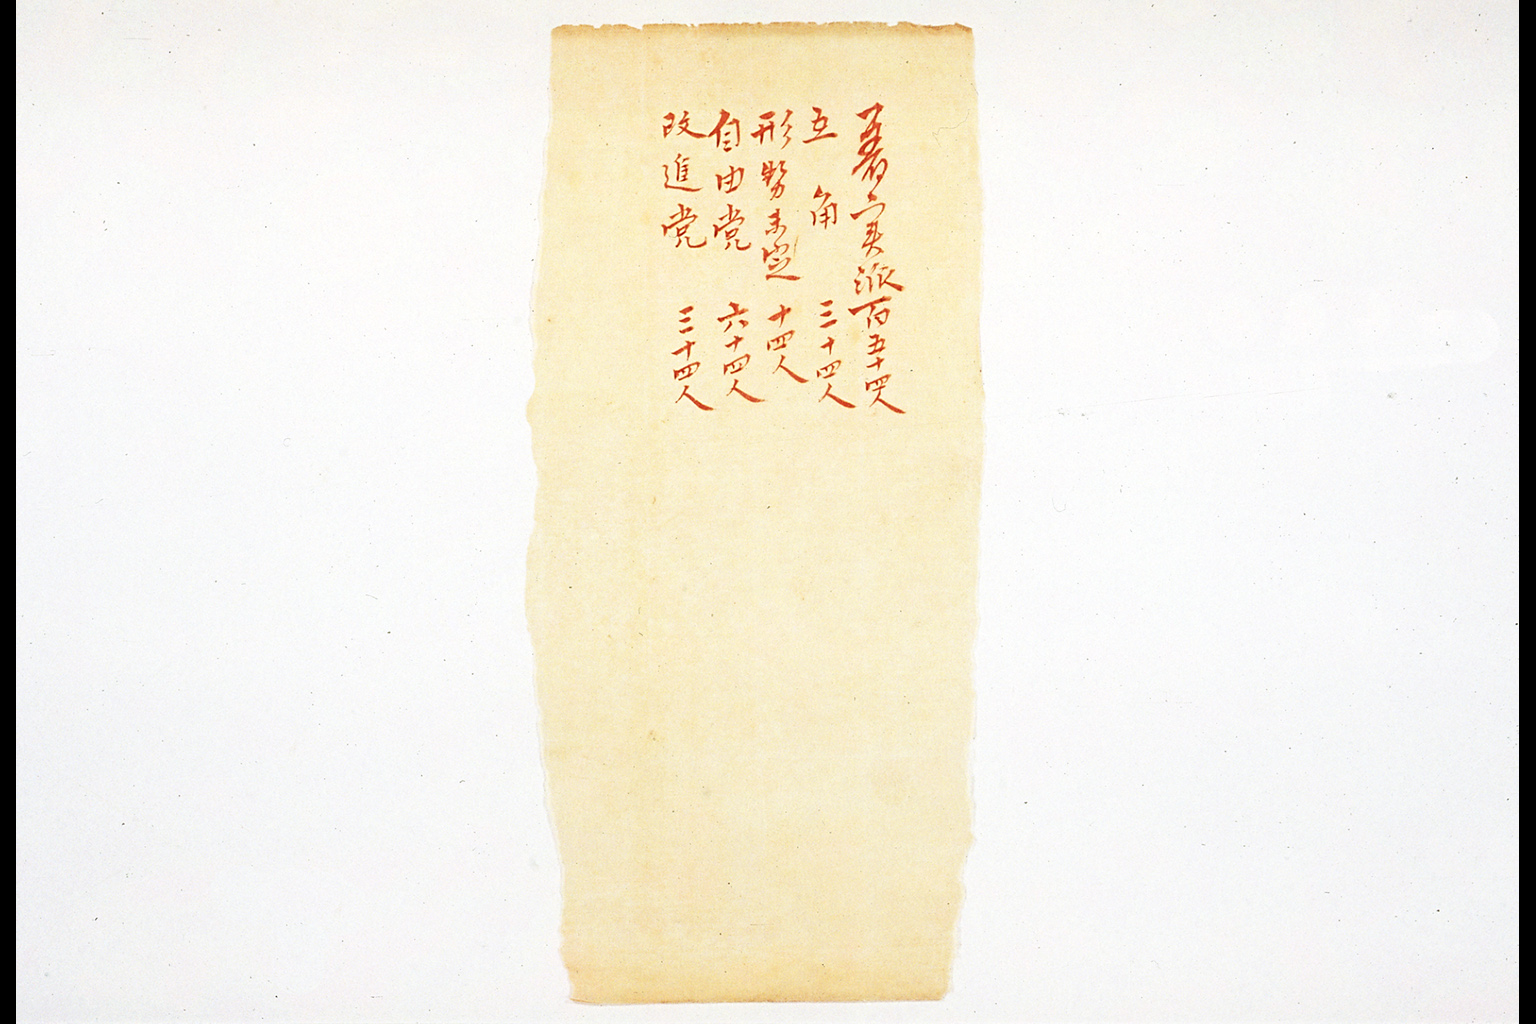 着実派百五十四人
五角 三十四人
形勢未定 十四人
自由党 六十四人
改進党 三十四人